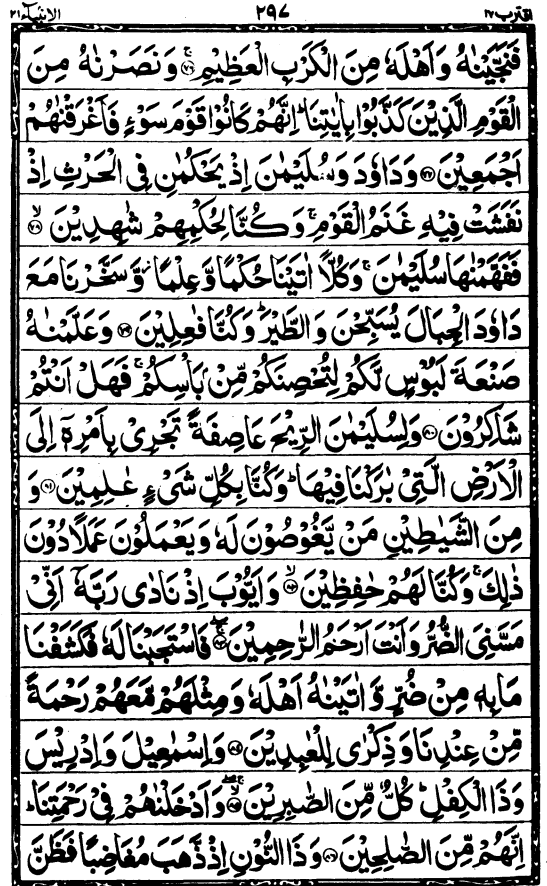 اقترب ١٧ ٢٩٧ الانبياء ٢١
فَنَجَّيْنٰهُ وَاَهْلَهٗ مِنَ الْكَرْبِ الْعَظِيْمِ ۚ﴿٧٦﴾ وَنَصَرْنٰهُ مِنَ
الْقَوْمِ الَّذِيْنَ كَذَّبُوْا بِاٰيٰتِنَا ؕ اِنَّهُمْ كَانُوْا قَوْمَ سَوْءٍ فَاَغْرَقْنٰهُمْ
اَجْمَعِيْنَ ﴿٧٧﴾ وَدَاوٗدَ وَسُلَيْمٰنَ اِذْ يَحْكُمٰنِ فِى الْحَرْثِ اِذْ
نَفَشَتْ فِيْهِ غَنَمُ الْقَوْمِ ۚ وَكُنَّا لِحُكْمِهِمْ شٰهِدِيْنَ ۙ﴿٧٨﴾
فَفَهَّمْنٰهَا سُلَيْمٰنَ ۚ وَكُلًّا اٰتَيْنَا حُكْمًا وَّعِلْمًا ؗ وَّسَخَّرْنَا مَعَ
دَاوٗدَ الْجِبَالَ يُسَبِّحْنَ وَالطَّيْرَ ؕ وَكُنَّا فٰعِلِيْنَ ﴿٧٩﴾ وَعَلَّمْنٰهُ
صَنْعَةَ لَبُوْسٍ لَّكُمْ لِتُحْصِنَكُمْ مِّنْۢ بَاْسِكُمْ ۚ فَهَلْ اَنْتُمْ
شَاكِرُوْنَ ﴿٨٠﴾ وَلِسُلَيْمٰنَ الرِّيْحَ عَاصِفَةً تَجْرِىْ بِاَمْرِهٖۤ اِلَى
الْاَرْضِ الَّتِىْ بٰرَكْنَا فِيْهَا ؕ وَكُنَّا بِكُلِّ شَىْءٍ عٰلِمِيْنَ ﴿٨١﴾ وَ
مِنَ الشَّيٰطِيْنِ مَنْ يَّغُوْصُوْنَ لَهٗ وَيَعْمَلُوْنَ عَمَلًا دُوْنَ
ذٰلِكَ ۚ وَكُنَّا لَهُمْ حٰفِظِيْنَ ۙ﴿٨٢﴾ وَاَيُّوْبَ اِذْ نَادٰى رَبَّهٗۤ اَنِّىْ
مَسَّنِىَ الضُّرُّ وَاَنْتَ اَرْحَمُ الرّٰحِمِيْنَ ۚۖ﴿٨٣﴾ فَاسْتَجَبْنَا لَهٗ فَكَشَفْنَا
مَا بِهٖ مِنْ ضُرٍّ وَّاٰتَيْنٰهُ اَهْلَهٗ وَمِثْلَهُمْ مَّعَهُمْ رَحْمَةً
مِّنْ عِنْدِنَا وَذِكْرٰى لِلْعٰبِدِيْنَ ﴿٨٤﴾ وَاِسْمٰعِيْلَ وَاِدْرِيْسَ
وَذَا الْكِفْلِ ؕ كُلٌّ مِّنَ الصّٰبِرِيْنَ ۚۖ﴿٨٥﴾ وَاَدْخَلْنٰهُمْ فِىْ رَحْمَتِنَا ؕ
اِنَّهُمْ مِّنَ الصّٰلِحِيْنَ ﴿٨٦﴾ وَذَا النُّوْنِ اِذْ ذَّهَبَ مُغَاضِبًا فَظَنَّ